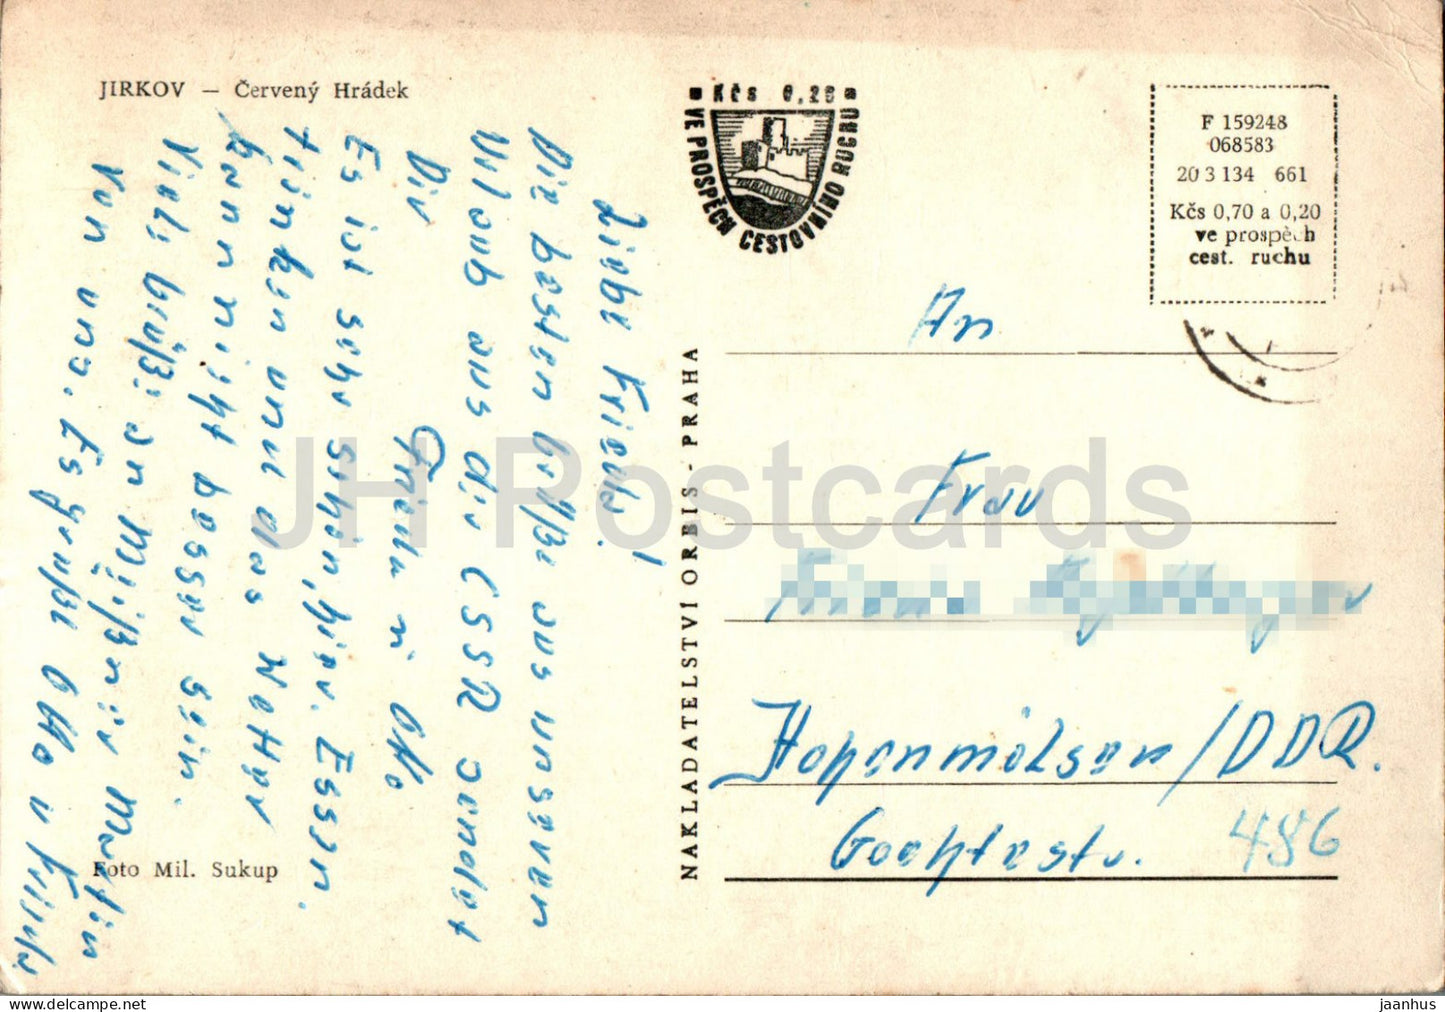 JIRKOV — Červený Hrádek
Kčs 0,20
VE PROSPĚCH CESTOVNÍHO RUCHU
F 159248
068583
20 3 134 661
Kčs 0,70 a 0,20
ve prospěch
cest. ruchu
Liebe Frieda!
Die besten Grüße aus unseren
Urlaub aus der CSSR sendet
Dir
Frieda u Otto
Es ist sehr schön hier. Essen.
trinken und das Wetter
kann nicht besser sein.
Viele Grüße an Meißner Martin
von uns. Es grüßt Otto u Frieda
An
Frau
Hohenmölsen/DDR.
486
NAKLADATELSTVÍ ORBIS - PRAHA
Foto Mil. Sukup
JH Postcards
jaanhus
delcampe.net